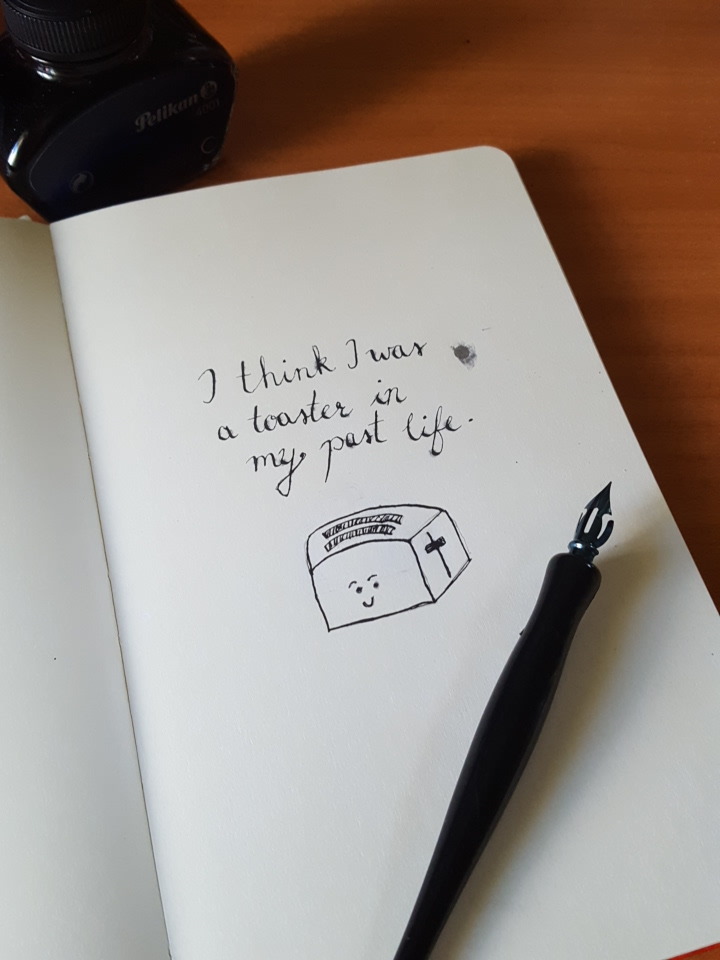 Pelikan
4001
I think I was
a toaster in
my past life.